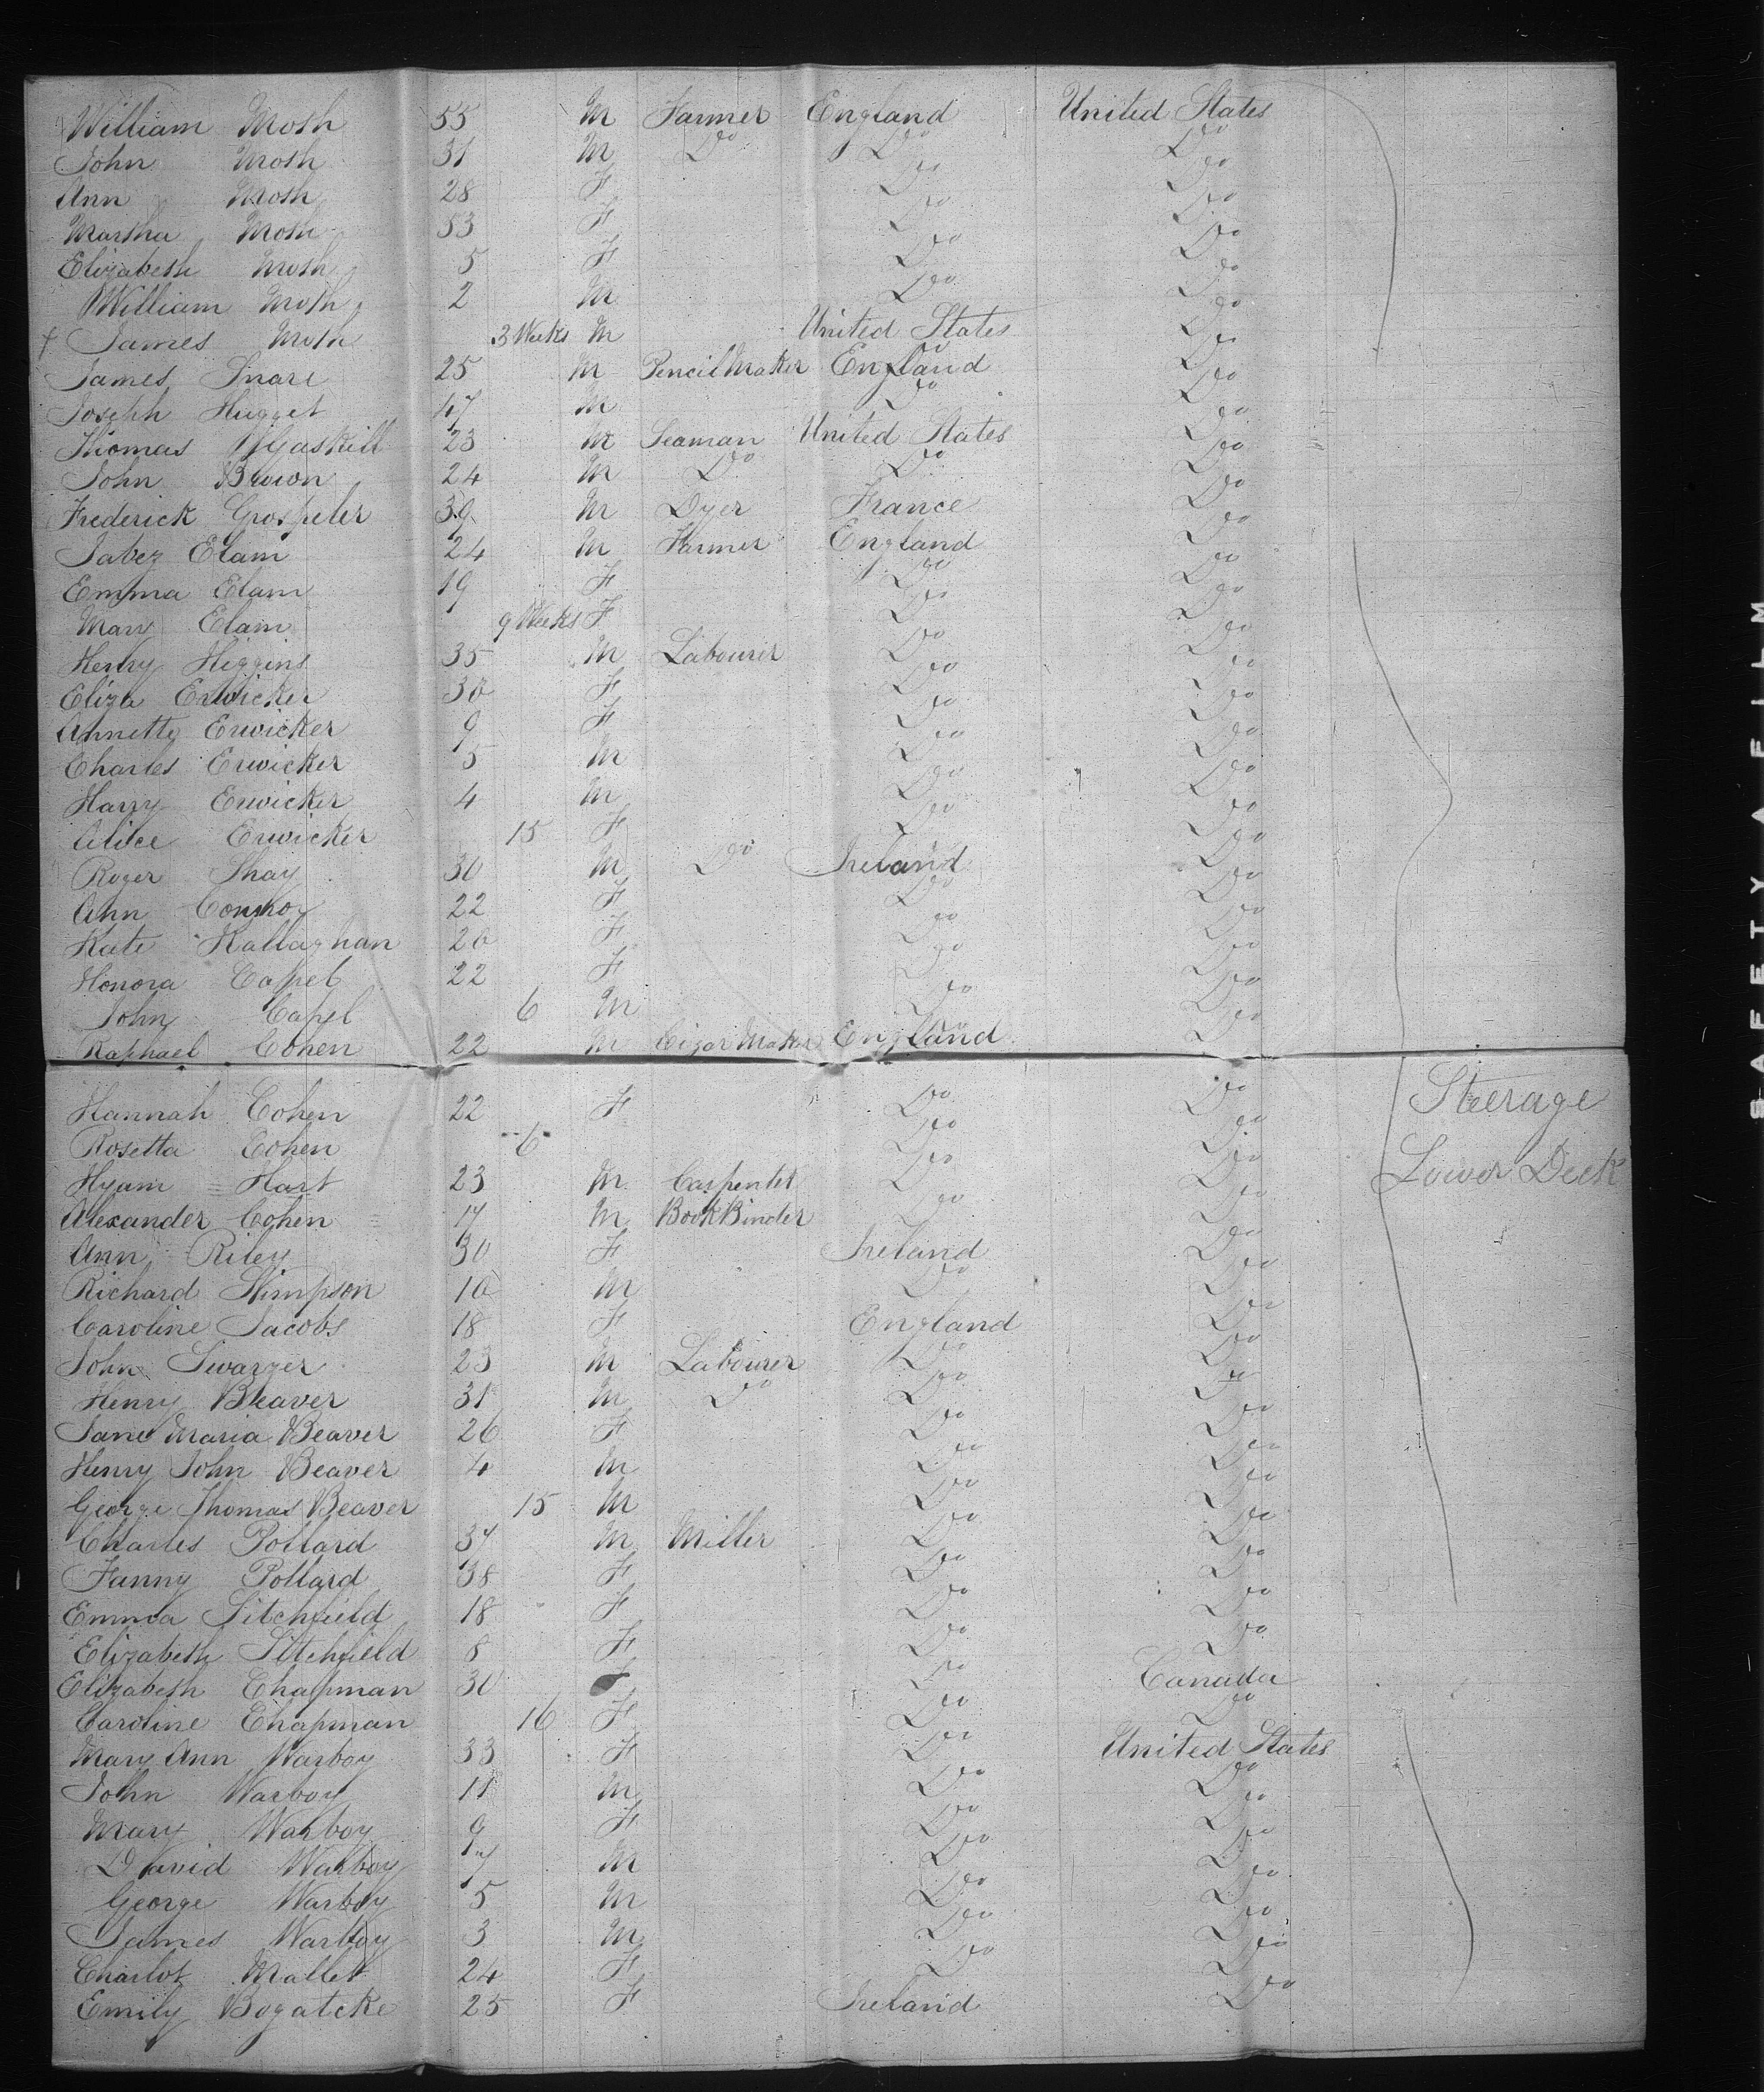 William Mosh 55 M Farmer England United States
John Mosh 31 M Do Do Do
Ann Mosh 28 F Do Do
Martha Mosh 53 F Do Do
Elizabeth Mosh 5 F Do Do
William Mosh 2 M Do Do
James Mosh 3 Weeks M United States Do
James Snare 25 M Pencil Maker England Do
Joseph Hugget 17 M Do Do
Thomas Gaskill 23 M Seaman United States Do
John Brown 24 M Do Do Do
Frederick 39 M Dyer France Do
Jabez Elam 24 M Farmer England Do
Emma Elam 19 F Do Do
Mary Elam 9 Weeks F Do Do
Henry Higgins 35 M Labourer Do Do
Eliza Erwicker 30 F Do Do
Annette Erwicker 9 F Do Do
Charles Erwicker 5 M Do Do
Harry Erwicker 4 M Do Do
Alice Erwicker 15 F Do Do
Roger Shay 30 M Do Ireland Do
Ann Connor 22 F Do Do
Kate Kallaghan 20 F Do Do
Honora Capel 22 F Do Do
John Capel 6 M Do Do
Raphael Cohen 22 M Cigar Maker England Do
Hannah Cohen 22 F Do Do Steerage
Rosetta Cohen 6 Do Do
Hyam Hart 23 M Carpenter Do Do Lower Deck
Alexander Cohen 17 M Book Binder Do Do
Ann Riley 30 F Ireland Do
Richard Stimpson 16 M Do Do
Caroline Jacobs 18 F England Do
John Swarger 23 M Labourer Do Do
Henry Beaver 31 M Do Do Do
Jane Maria Beaver 26 F Do Do
Henry John Beaver 4 M Do Do
George Thomas Beaver 15 M Do Do
Charles Pollard 37 M Miller Do Do
Fanny Pollard 38 F Do Do
Emma Litchfield 18 F Do Do
Elizabeth Litchfield 8 F Do Do
Elizabeth Chapman 30 F Do Canada
Caroline Chapman 16 F Do Do
Mary Ann Warboy 33 F Do United States
John Warboy 11 M Do Do
Mary Warboy 9 F Do Do
David Warboy 7 M Do Do
George Warboy 5 M Do Do
James Warboy 3 M Do Do
Charlot Mallet 24 F Do Do
Emily Bogatcke 25 F Ireland Do
SAFETY A FILM